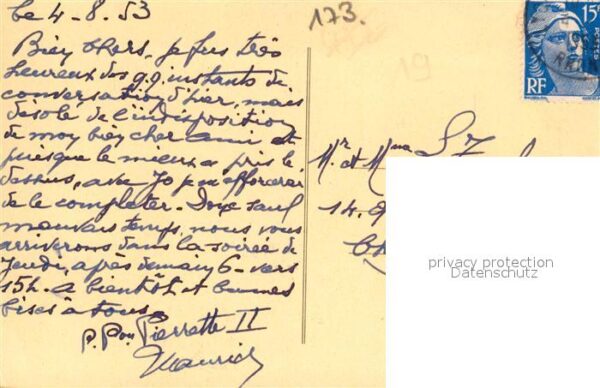 le 4-8.53
173.
Bien chers, je fus très
heureux des q.q. instants de
conversation d'hier, mais
désolé de l'indisposition
de mon bien cher ami et
puisque le mieux a pris le
dessus, avec Jo je m'efforcerai
de le compléter. Donc sauf
mauvais temps, nous vous
arriverons dans la soirée de
Jeudi, après demain 6- vers
15h. a bientôt et bonnes
bises à tous.
P. Pierrette II
Maurice
19
15F
POSTES
RF
Mr et Mme
14.
privacy protection
Datenschutz